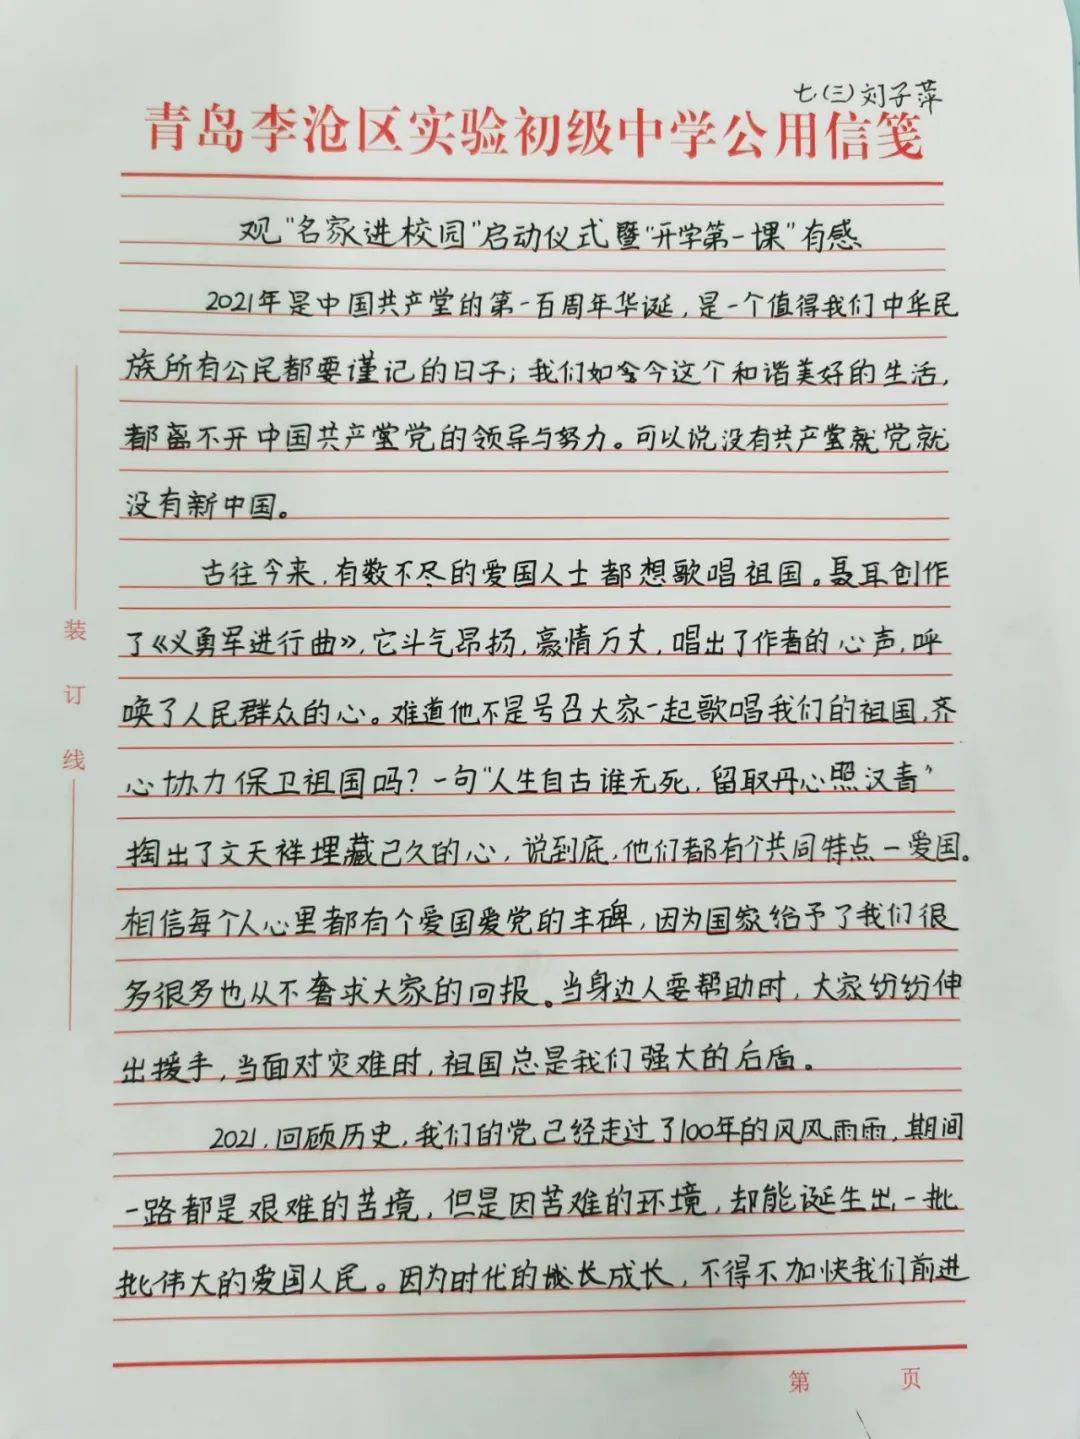 七(三)刘子萍
青岛李沧区实验初级中学公用信笺
观“名家进校园”启动仪式暨“开学第一课”有感
2021年是中国共产堂的第一百周年华诞，是一个值得我们中华民
族所有公民都要谨记的日子；我们如含今这个和谐美好的生活，
都离不开中国共产堂党的领导与努力。可以说没有共产堂就党就
没有新中国。
古往今来，有数不尽的爱国人士都想歌唱祖国。聂耳创作
了《义勇军进行曲》，它斗气昂扬，豪情万丈，唱出了作者的心声，呼
唤了人民群众的心。难道他不是号召大家一起歌唱我们的祖国，齐
心协力保卫祖国吗？一句“人生自古谁无死，留取丹心照汉青”
掏出了文天祥埋藏己久的心，说到底，他们都有个共同特点—爱国。
相信每个人心里都有个爱国爱党的丰碑，因为国家给予了我们很
多很多也从不奢求大家的回报。当身边人要帮助时，大家纷纷伸
出援手，当面对灾难时，祖国总是我们强大的后盾。
2021，回顾历史，我们的党己经走过了100年的风风雨雨，期间
一路都是艰难的苦境，但是因苦难的环境，却能诞生出一批
批伟大的爱国人民。因为时代的成长成长，不得不加快我们前进
装
订
线
第 页